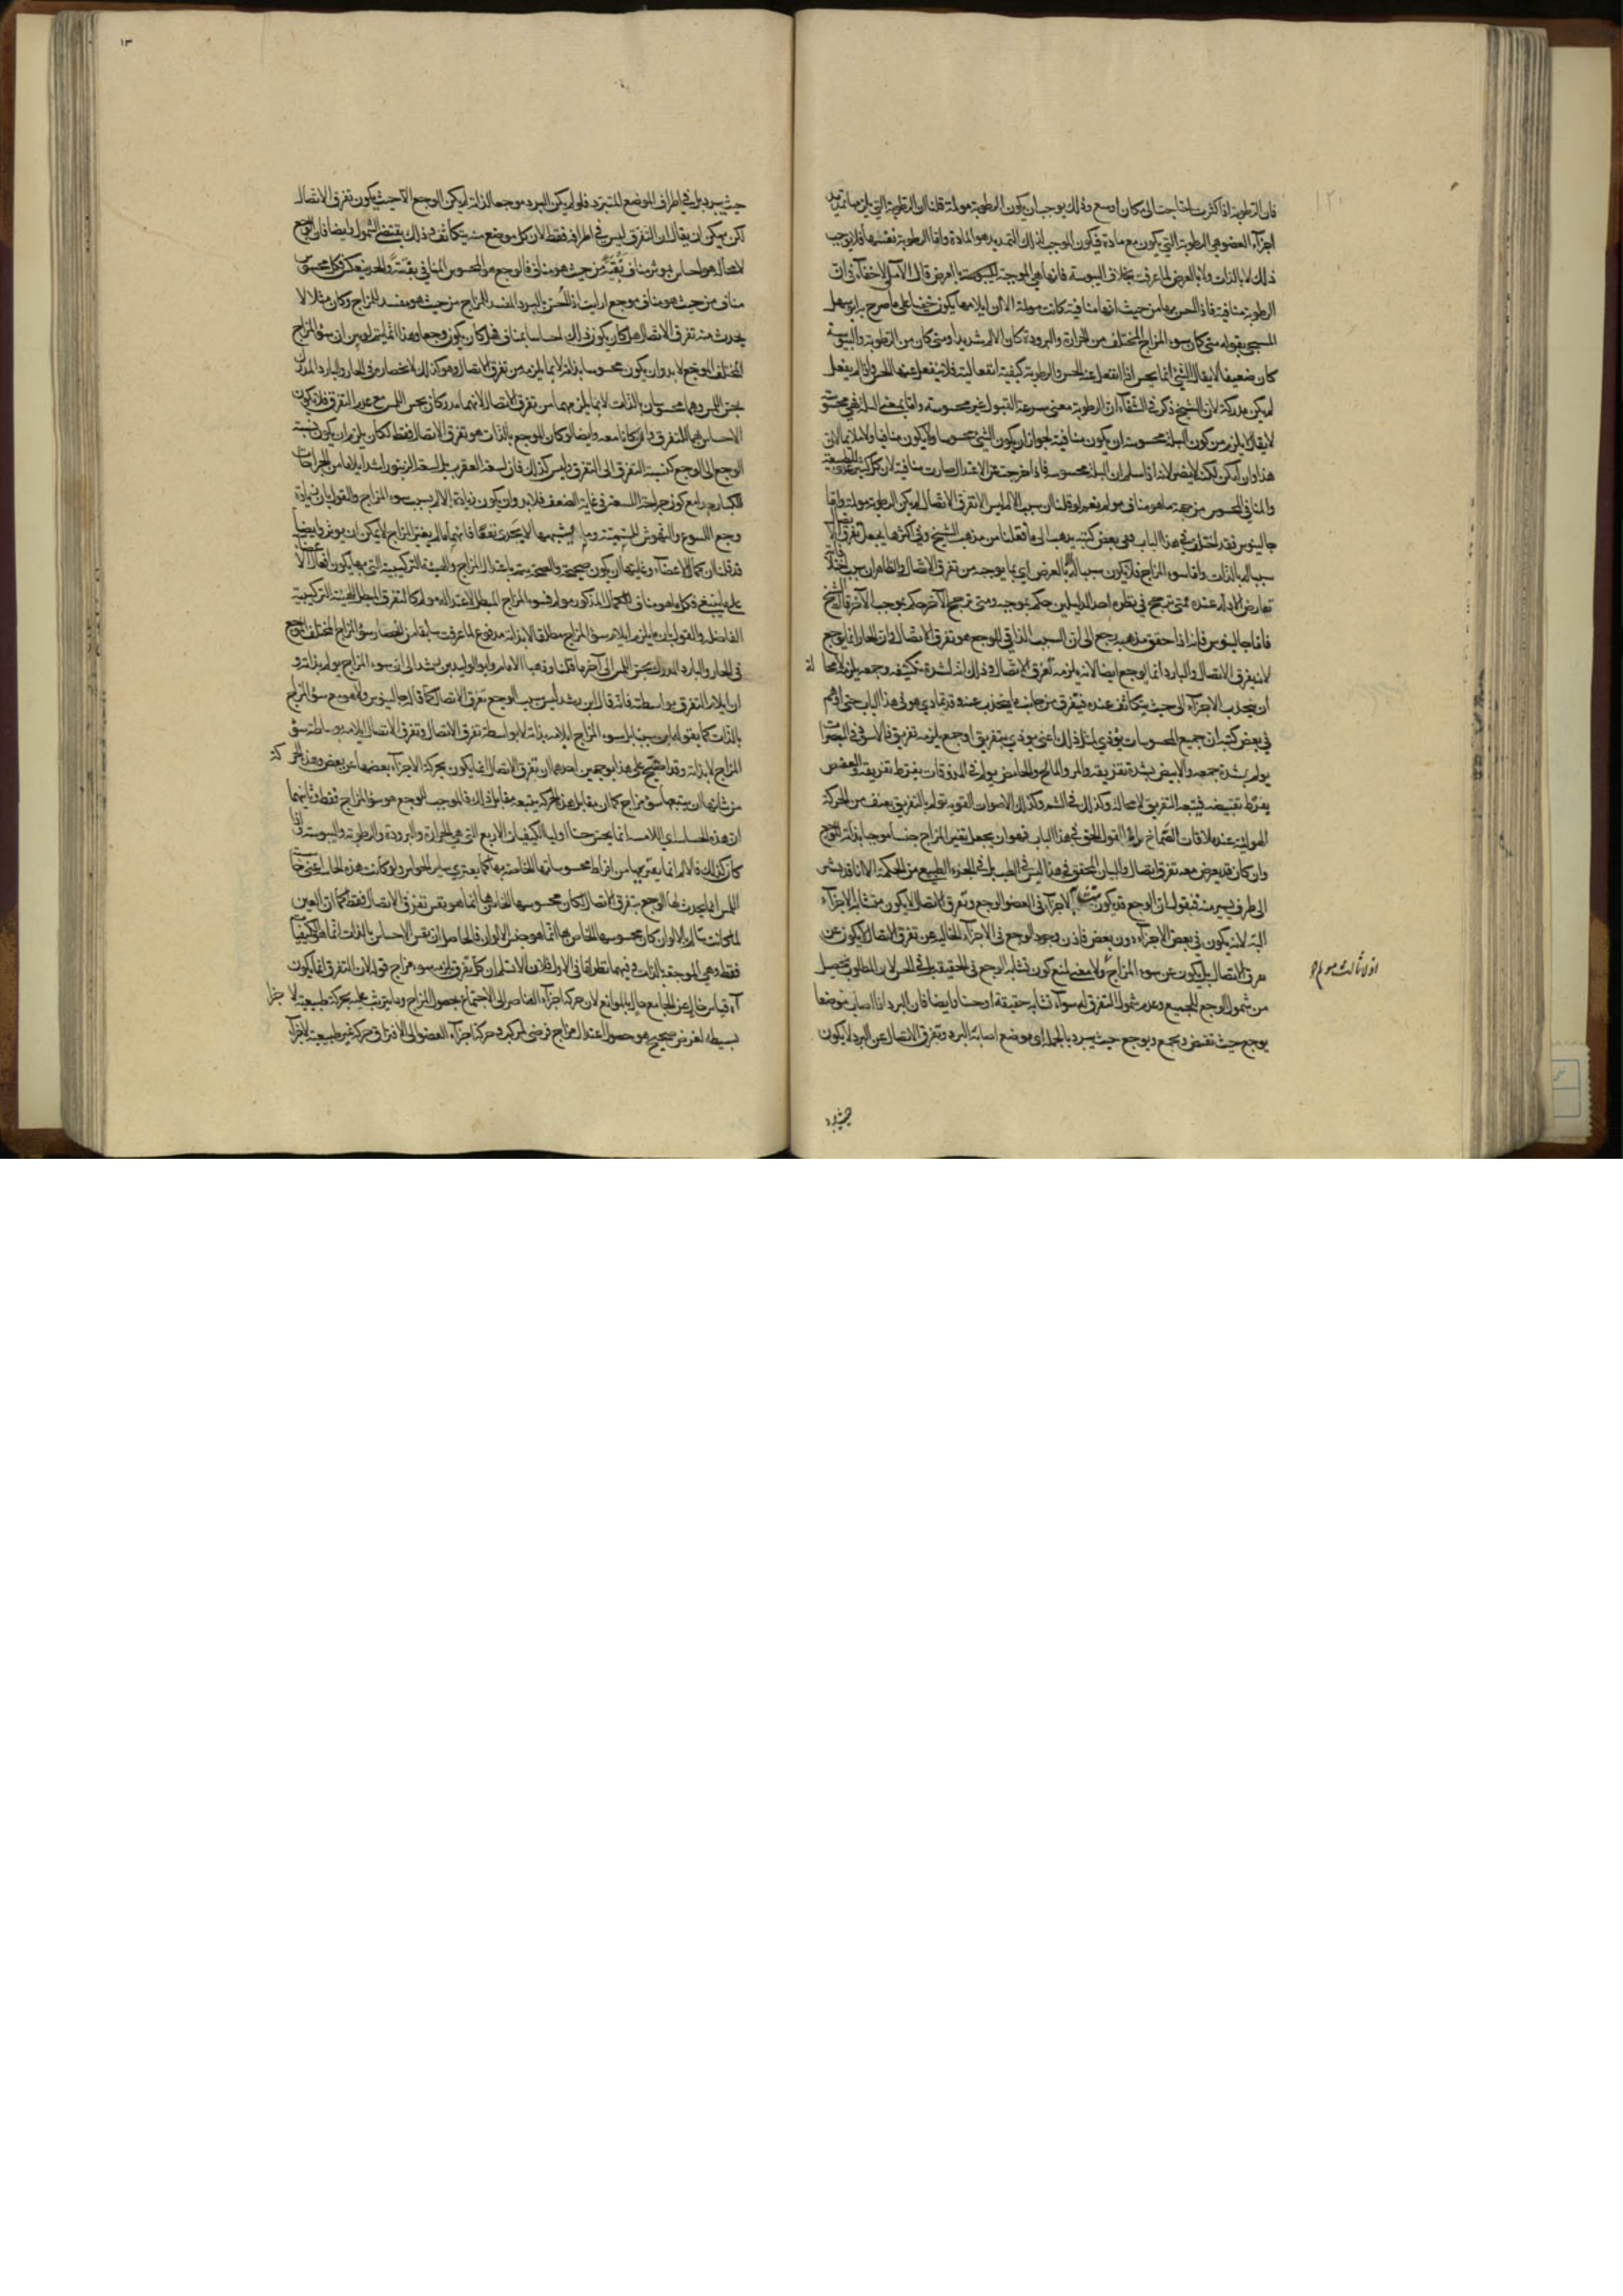 فان الرطوبة اذا كثرت احتاجت الى مكان اوسع وذلك يوجب ان يكون الرطوبة مولمة قلنا ان الرطوبة التي يلزمها تمديد
اجزاء العضو هي الرطوبة التي يكون مع مادة فيكون الموجب لذلك التمديد هو المادة واما الرطوبة نفسها فلا يوجب
ذلك لا بالذات ولا بالعرض لما عرفت بخلاف اليبوسة فانها هي الموجبة بالعرض قال الآملي لا خفاء في ان
الرطوبة منافية فاذا احس بها من حيث انها منافية كانت مولمة الا ان ايلامها يكون خفيا على ما صرح به ابو سهل
المسيحي بقوله متى كان سوء المزاج المختلف من الحرارة والبرودة كان الالم شديدا ومتى كان من الرطوبة واليبوسة
كان ضعيفا لا يقال الشيء انما يحس اذا انفعل عنه الحس والرطوبة كيفية انفعالية فلا ينفعل عنها الحس واذا لم ينفعل
لم يكن مدركة لان الشيخ ذكر في الشفاء ان الرطوبة بمعنى سرعة القبول غير محسوسة واما بمعنى البلة فهي محسوسة
لا يقال لا يلزم من كون البلة محسوسة ان يكون منافية لجواز ان يكون الشيء محسوسا ولا يكون منافيا ولا ملائما لان
هذا وان امكن لكنه لا يضر لانه اذا سلم ان البلة محسوسة فاذا خرجت عن الاعتدال صارت منافية لان كل كثير عدو للطبيعة
والمنافي المحسوس من جهة ما هو مناف مولم نعم لو قلنا ان سبب الالم ليس الا تفرق الاتصال لم يكن الرطوبة مولمة واما
جالينوس فقد اختلف في هذا الباب ففي بعض كتبه يذهب الى ما نقلنا من مذهب الشيخ وفي اكثرها يجعل تفرق الاتصال
سببا له بالذات واما سوء المزاج فلا يكون سببا له الا بالعرض اي بما يوجبه من تفرق الاتصال والظاهر ان سبب
تعارض الادلة عنده فمتى ترجح في نظره احد الدليلين حكم بموجبه ومتى ترجح الآخر حكم بموجب الآخر قال الشيخ
فاما جالينوس فانه اذا حقق مذهبه رجع الى ان السبب الذاتي للوجع هو تفرق الاتصال وان الحار انما يوجع
لانه يفرق الاتصال والبارد انما يوجع ايضا لانه يلزمه تفرق الاتصال وذلك انه لشدة تكثيفه وجمعه يلزمه لا محالة
ان ينجذب الاجزاء الى حيث يتكاثف عنده فيتفرق من جانب ما ينجذب عنه وقد تمادى هو في هذا الباب حتى اوهم
في بعض كتبه ان جميع المحسوسات يؤذي لمثل ذلك اعني يؤذي بتفريق او جمع يلزمه تفريق فالاسود في المبصرات
يولم بشدة جمعه والابيض بشدة تفريقه والمر والمالح والحامض يولم في المذوقات بفرط تفريقه والعفص
بفرط تقبيضه فيتبعه التفريق لا محالة وكذلك في الشم وكذلك الاصوات القوية تولم بالتفريق بعنف من الحركة
الهوائية عند ملاقات الصماخ واما القول الحق في هذا الباب فهو ان يجعل تغير المزاج جنسا موجبا بذاته للوجع
وان كان قد يعرض معه تفرق اتصال والبيان المحقق في هذا ليس في الطب بل في الجزء الطبيعي من الحكمة الا انا قد نشير
الى طرف يسير منه فنقول ان الوجع قد يكون متشابه الاجزاء في العضو الوجع وتفرق الاتصال لا يكون متشابه الاجزاء
البتة لانه يكون في بعض الاجزاء دون بعض فاذن وجود الوجع في الاجزاء الخالية عن تفرق الاتصال لا يكون عن
تفرق الاتصال بل يكون عن سوء المزاج ولا معنى لمنع كون تشابه الوجع في الحقيقة بل في الحس لان المطلوب يحصل
من شمول الوجع للجميع وعدم شمول التفرق له سواء تشابه حقيقة او حسا وايضا فان البرد اذا اصاب موضعا
يوجع حيث تقبض ويجمع ويوجع حيث يبرد بالجملة اي موضع اصابة البرد وتفرق الاتصال عن البرد لا يكون
حيث يبرد
١٣
حيث يبرد بل في اطراف الموضع المتبرد فلو لم يكن البرد موجعا لذاته لم يكن الوجع الا حيث يكون تفرق الاتصال
لكن يمكن ان يقال ان التفرق ليس في اطرافه فقط لان كل موضع منه يتكاثف وذلك يقتضي الشمول وايضا فان الوجع
لا محالة هو احساس بمؤثر مناف بغتة من حيث هو مناف فالوجع هو المحسوس المنافي بغتة والحد ينعكس وكل محسوس
مناف من حيث هو مناف موجع ارأيت اذا احس بالبرد المفسد للمزاج من حيث هو مفسد للمزاج وكان مثلا لا
يحدث منه تفرق الاتصال هل كان يكون ذلك احساسا بمناف فهل كان يكون وجعا وهذا انما يتم لو بين ان سوء المزاج
المختلف الموجع لا بد وان يكون محسوسا بذاته لا بما يلزمه من تفرق الاتصال وهو كذلك لانحصاره في الحار والبارد المدرك
بحس اللمس وهما محسوسان بالذات لا بما يلزمهما من تفرق الاتصال لانهما مدركان بحس اللمس مع عدم التفرق فلا يكون
الاحساس بهما للتفرق وان كانا معه وايضا لو كان الموجع بالذات هو تفرق الاتصال فقط لكان يلزم ان يكون نسبة
الوجع الى الوجع كنسبة التفرق الى التفرق وليس كذلك فان لسعة العقرب بل لسعة الزنبور اشد ايلاما من الجراحات
الكبار جدا مع كون جراحة اللسعة في غاية الضعف فلا بد وان يكون زيادة الالم بسبب سوء المزاج والقول بان زيادة
وجع اللسوع والنهوش السمية وما يشبهها لا يحدث
قد قلنا ان كمال الاعضاء وغايتها ان يكون صحيحة والصحة يتم باعتدال المزاج والهيئة التركيبية التي بها يكون افعال الاعضاء
على ما ينبغي فكل ما هو مناف للكمال المذكور مولم فسوء المزاج المبطل لاعتداله مولم كالتفرق المبطل للهيئة التركيبية
الفاضلة والقول بانه يلزم ايلام سوء المزاج مطلقا لا بذاته مدفوع لما عرفت سابقا من انحصار سوء المزاج المختلف الموجع
في الحار والبارد المدرك بحس اللمس الى آخر ما قلنا وذهب الامام وابو الوليد بن رشد الى ان سوء المزاج يولم بذاته و
ان ايلام التفرق بواسطته فانه قال ابن رشد ليس سبب الوجع تفرق الاتصال كما قاله جالينوس ولا هو مع سوء المزاج
بالذات كما يقوله ابن سينا بل سوء المزاج ايلامه بذاته لا بواسطة تفرق الاتصال وتفرق الاتصال ايلامه بوساطة سوء
المزاج لا بذاته وقد احتج على هذا بوجهين احدهما ان تفرق الاتصال انما يكون بحركة الاجزاء بعضها عن بعض وهذه الحركة
من شانها ان يتبعها سوء مزاج كما ان مقابل هذه الحركة يتبعه مقابل ذلك فالموجب للوجع هو سوء المزاج فقط وثانيهما
ان هذه الحاسة اي اللامسة انما يحس حسا اوليا الكيفيات الاربع التي هي الحرارة والبرودة والرطوبة واليبوسة واذا
كان كذلك فالالم انما يعتريها من افراط محسوساتها الخاصة بها كما يعتري سائر الحواس ولو كانت هذه الحاسة اعني حاسة
اللمس انما يحدث لها الوجع بتفرق الاتصال لكان محسوسها الخاص بها انما هو نفس تفرق الاتصال فقط كما ان العين
لما كانت تتالم بالالوان كان محسوسها الخاص بها انما هو جنس الالوان فالحاصل ان نفس الاحساس بالذات انما هو الكيفيات
فقط وهي الموجعة بالذات وفيهما نظر اما في الاول فلانا لا نسلم ان كل تفرق يلزمه سوء مزاج قوله لان التفرق انما يكون
آه قياس خال عن الجامع حال بالموانع لان حركة اجزاء العناصر الى الاجتماع بحصول المزاج وما يترتب عليه بحركة طبيعية لاجزاء
بسيطة لغرض صحيح هو حصول اعتدال مزاج فرضي لمركب وحركة اجزاء العضو الى الافتراق حركة غير طبيعية لاجزاء